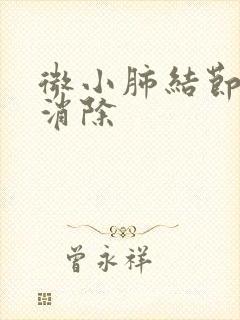 微小肺結節
消除
曾永祥